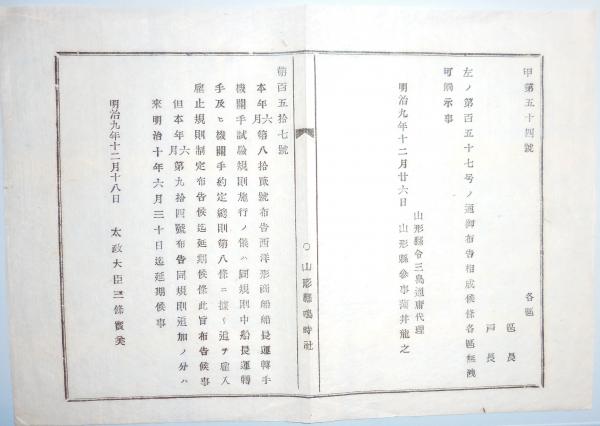 甲第五十四號
各區
區長
戸長
左ノ第百五十七号ノ通御布告相成候條各區無洩
可觸示事
明治九年十二月廿六日
山形縣令三島通庸代理
山形縣參事薄井龍之
○山形縣鳴時社
第百五拾七號
本年六月第八拾貳號布告西洋形商船船長運轉手
機關手試驗規則施行ノ儀ハ同規則中船長運轉
手及ヒ機關手約定總則第八條ニ據リ追テ雇入
雇止規則制定布告候迄延期候條此旨布告候事
但本年六月第九拾四號布告同規則追加ノ分ハ
來明治十年六月三十日迄延期候事
明治九年十二月十八日
太政大臣三條實美